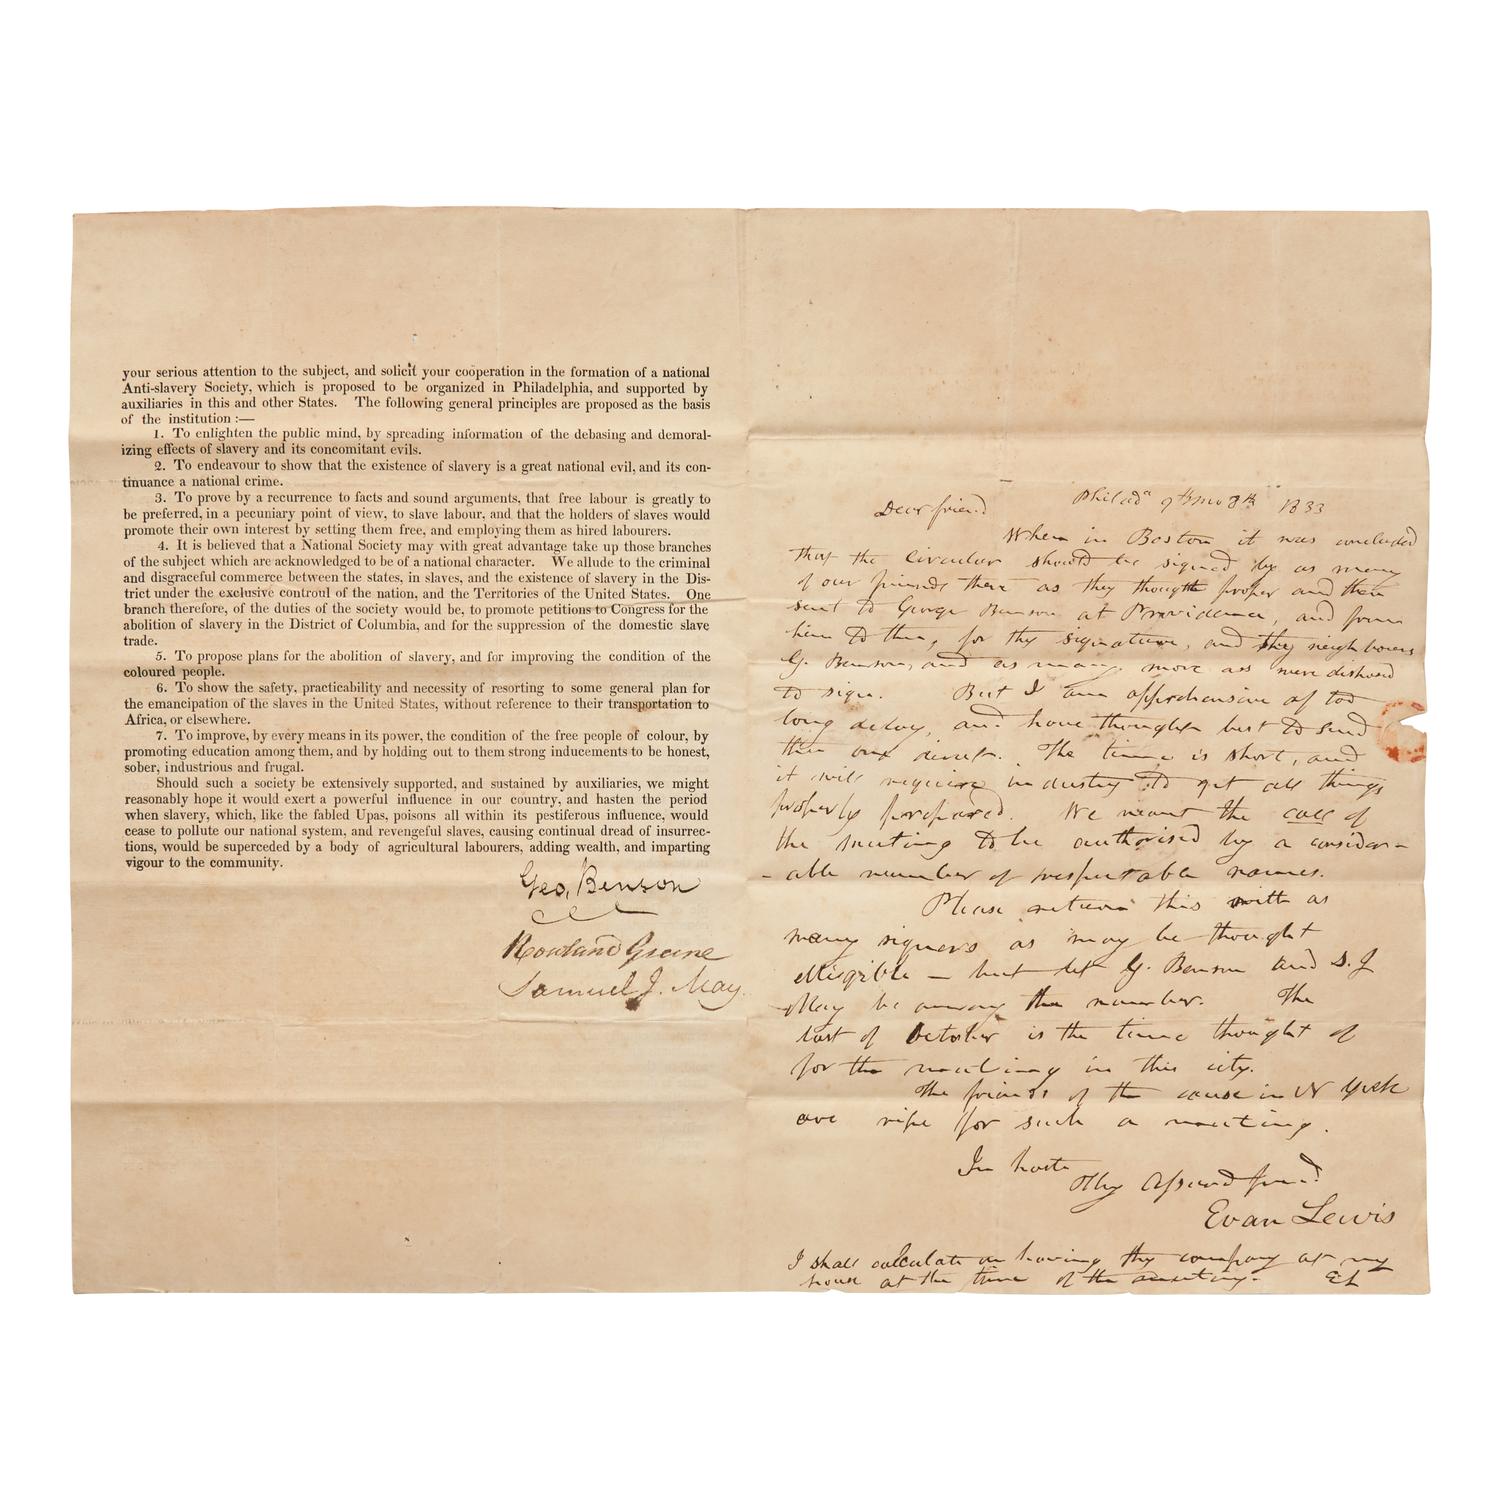 your serious attention to the subject, and solicit your coöperation in the formation of a national
Anti-slavery Society, which is proposed to be organized in Philadelphia, and supported by
auxiliaries in this and other States. The following general principles are proposed as the basis
of the institution :—
1. To enlighten the public mind, by spreading information of the debasing and demoral-
izing effects of slavery and its concomitant evils.
2. To endeavour to show that the existence of slavery is a great national evil, and its con-
tinuance a national crime.
3. To prove by a recurrence to facts and sound arguments, that free labour is greatly to
be preferred, in a pecuniary point of view, to slave labour, and that the holders of slaves would
promote their own interest by setting them free, and employing them as hired labourers.
4. It is believed that a National Society may with great advantage take up those branches
of the subject which are acknowledged to be of a national character. We allude to the criminal
and disgraceful commerce between the states, in slaves, and the existence of slavery in the Dis-
trict under the exclusive controul of the nation, and the Territories of the United States. One
branch therefore, of the duties of the society would be, to promote petitions to Congress for the
abolition of slavery in the District of Columbia, and for the suppression of the domestic slave
trade.
5. To propose plans for the abolition of slavery, and for improving the condition of the
coloured people.
6. To show the safety, practicability and necessity of resorting to some general plan for
the emancipation of the slaves in the United States, without reference to their transportation to
Africa, or elsewhere.
7. To improve, by every means in its power, the condition of the free people of colour, by
promoting education among them, and by holding out to them strong inducements to be honest,
sober, industrious and frugal.
Should such a society be extensively supported, and sustained by auxiliaries, we might
reasonably hope it would exert a powerful influence in our country, and hasten the period
when slavery, which, like the fabled Upas, poisons all within its pestiferous influence, would
cease to pollute our national system, and revengeful slaves, causing continual dread of insurrec-
tions, would be superceded by a body of agricultural labourers, adding wealth, and imparting
vigour to the community.
Geo. Benson
Rowland Greene
Samuel J. May.
Philada 9th mo 8th 1833
Dear friend
When in Boston it was concluded
that the circular should be signed by as many
of our friends there as they thought proper and then
sent to George Benson at Providence, and from
him to thee, for thy signature, and thy neighbours
G. Benson, and as many more as were disposed
to sign. But I am apprehensive of too
long delay, and have thought best to send
thee one direct. The time is short, and
it will require industry to get all things
properly prepared. We want the call of
the meeting to be authorised by a consider-
-able number of respectable names.
Please return this with as
many signers as may be thought
elligible — but let G. Benson and S. J
May be among the number. The
last of October is the time thought of
for the meeting in this city.
The friends of the cause in N York
are ripe for such a meeting.
In haste
Thy Assured friend
Evan Lewis
I shall calculate on having thy company at my
house at the time of the meeting. EL